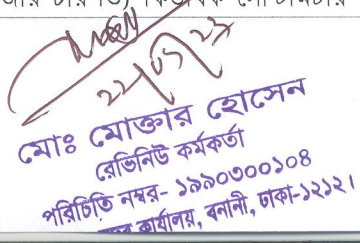 ২২/০১/২৩
মোঃ মোক্তার হোসেন
রেভিনিউ কর্মকর্তা
পরিচিতি নম্বর- ১৯৯০৩০০১০৪
কার্যালয়, বনানী, ঢাকা-১২১২।